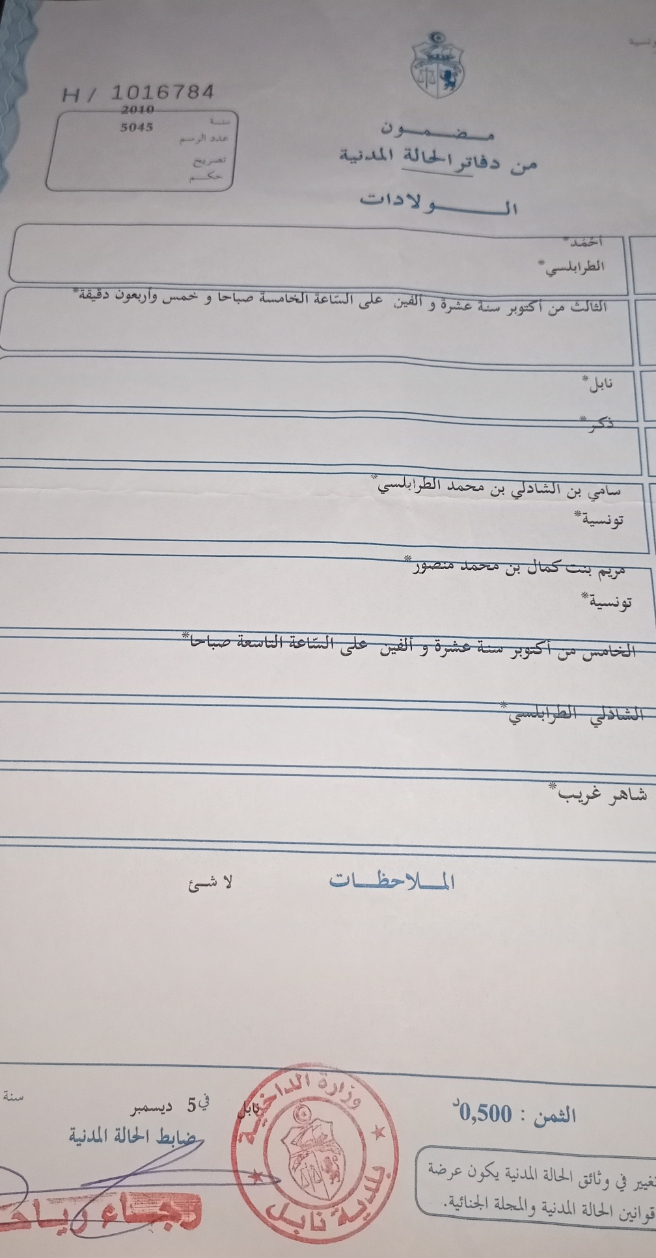 H / 1016784
2010
سنة
5045
عدد الرسم
تصريح
حكم
مضمون
من دفاتر الحالة المدنية
الولادات
أحمد*
الطرابلسي*
الثالث من أكتوبر سنة عشرة و ألفين على السّاعة الخامسة صباحا و خمس وأربعون دقيقة*
نابل*
ذكر*
سامي بن الشاذلي بن محمد الطرابلسي*
تونسية*
مريم بنت كمال بن محمد منصور*
تونسية*
الخامس من أكتوبر سنة عشرة و ألفين على السّاعة التاسعة صباحا*
الشاذلي الطرابلسي*
شاهر غريب*
الملاحظات لا شئ
الثمن : 0,500د
نابل في 5 ديسمبر سنة
ضابط الحالة المدنية
وزارة الداخلية
بلدية نابل
تغيير في وثائق الحالة المدنية يكون عرضة
قوانين الحالة المدنية والمجلة الجنائية.
رجاء رياحي